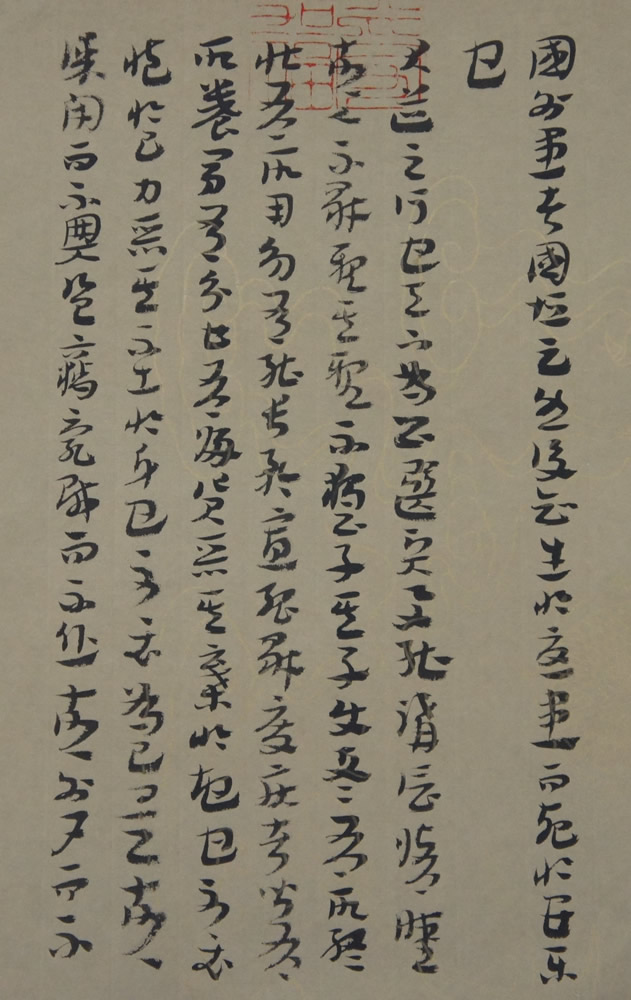 國外患者國恒亡然後知生於憂患而死於安樂
也
大道之行也天下為公選賢與能講信修睦
故人不獨親其親不獨子其子使老有所終
壯有所用幼有所長矜寡孤獨廢疾者皆有
所養男有分女有歸貨惡其棄於地也不必
藏於己力惡其不出於身也不必為己是故
謀閉而不興盜竊亂賊而不作故外戶而不